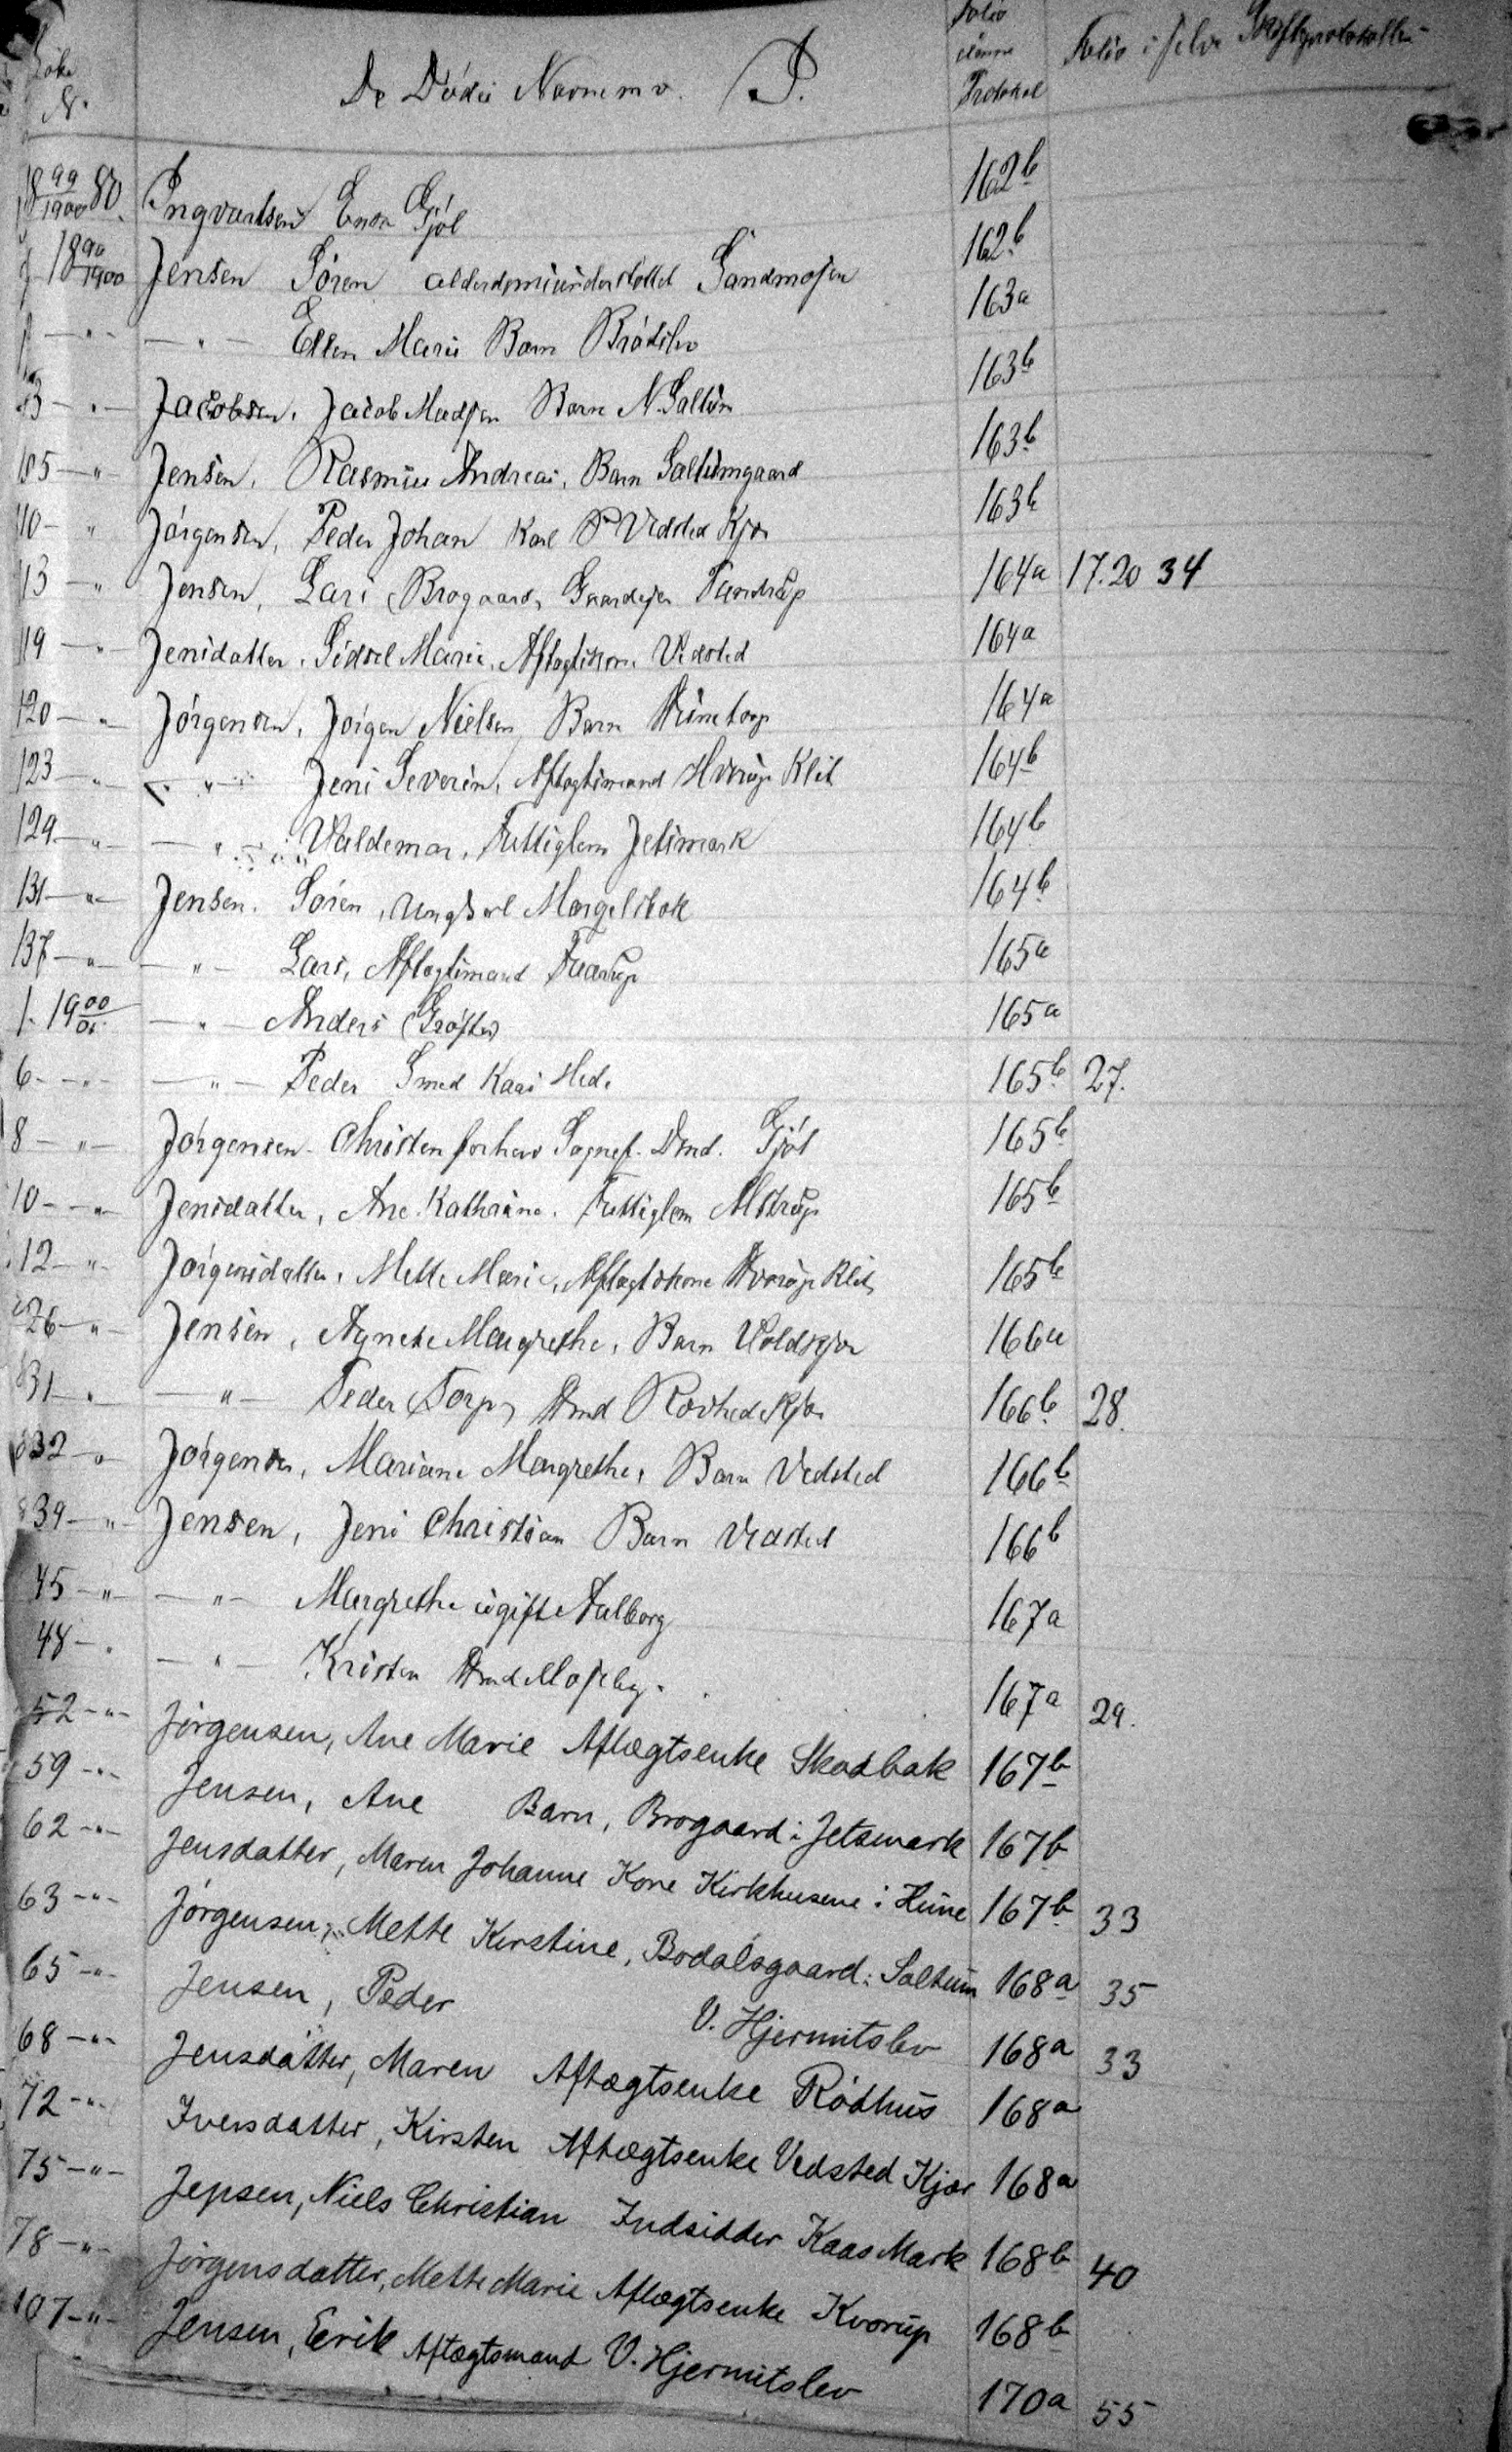 Løbe N. De Dødes Navne m.v. J. Folio i denne Protokol Folio i selve Skifteprotokollen
18 99/1900 80. Ingvartsen Enke Gjøl 162b
18 99/1900 Jensen Søren alderdomsunderstøttet Sandmosen 162b
— " — — " — Ellen Marie Barn Brødslev 163a
— " — Jacobsen, Jacob Madsen Barn N. Saltum 163b
105 — " Jensen, Rasmus Andreas, Barn Saltumgaard 163b
110 — " Jørgensen, Peder Johan Karl Vedsted Kjær 163b
113 — " Jensen, Lars (Brogaard) Gaardejer Pandrup 164a 17.20 34
119 — " Jensdatter, Sidsel Marie, Aftægtskone Vedsted 164a
120 — " — Jørgensen, Jørgen Nielsen Barn Hunetorp 164a
123 — " — — " — Jens Severin, Aftægtsmand Hvorup Klit 164b
129 — " — — " — Valdemar, Fattiglem Jetsmark 164b
131 — " — Jensen, Søren, Ungkarl Morgelstok 164b
137 — " — — " — Lars, Aftægtsmand Faarup 165a
1. 19 00/01 — " — Anders (Grøfter) 165a
6 — " — — " — Peder Smed Kaas Hede 165b 27.
8 — " — Jørgensen Christen forhen Sognef. Dmd. Gjøl 165b
10 — " — Jensdatter, Ane Kathrine. Fattiglem Alstrup 165b
12 — " — Jørgensdatter, Mette Marie, Aftægtskone Hvorup Klit 165b
26 — " — Jensen, Agnete Margrethe, Barn Voldkjær 166a
31 — " — — " — Peder (Torp) Hmd Rovhede Kjær 166b 28.
32 — " Jørgensen, Mariane Margrethe, Barn Vedsted 166b
39 — " — Jensen, Jens Christian Barn Vedsted 166b
45 — " — — " — Margrethe ugift Aalborg 167a
48 — " — " — Kristen Hmd Moselby. 167a 29.
52 — " — Jørgensen, Ane Marie Aftægtsenke Skodbak 167b
59 — " — Jensen, Ane Barn, Brogaard i Jetsmark 167b
62 — " — Jensdatter, Maren Johanne Kone Kirkhusene i Hune 167b 33
63 — " — Jørgensen, Mette Kirstine, Bodalsgaard i Saltum 168a 35
65 — " — Jensen, Peder V. Hjermitslev 168a 33
68 — " — Jensdatter, Maren Aftægtsenke Rødhus 168a
72 — " — Iversdatter, Kirsten Aftægtsenke Vedsted Kjær 168a
75 — " — Jepsen, Niels Christian Indsidder Kaas Mark 168b 40
78 — " — Jørgensdatter, Mette Marie Aftægtsenke Kvorup 168b
107 — " — Jensen, Erik Aftægtsmand V. Hjermitslev 170a 55